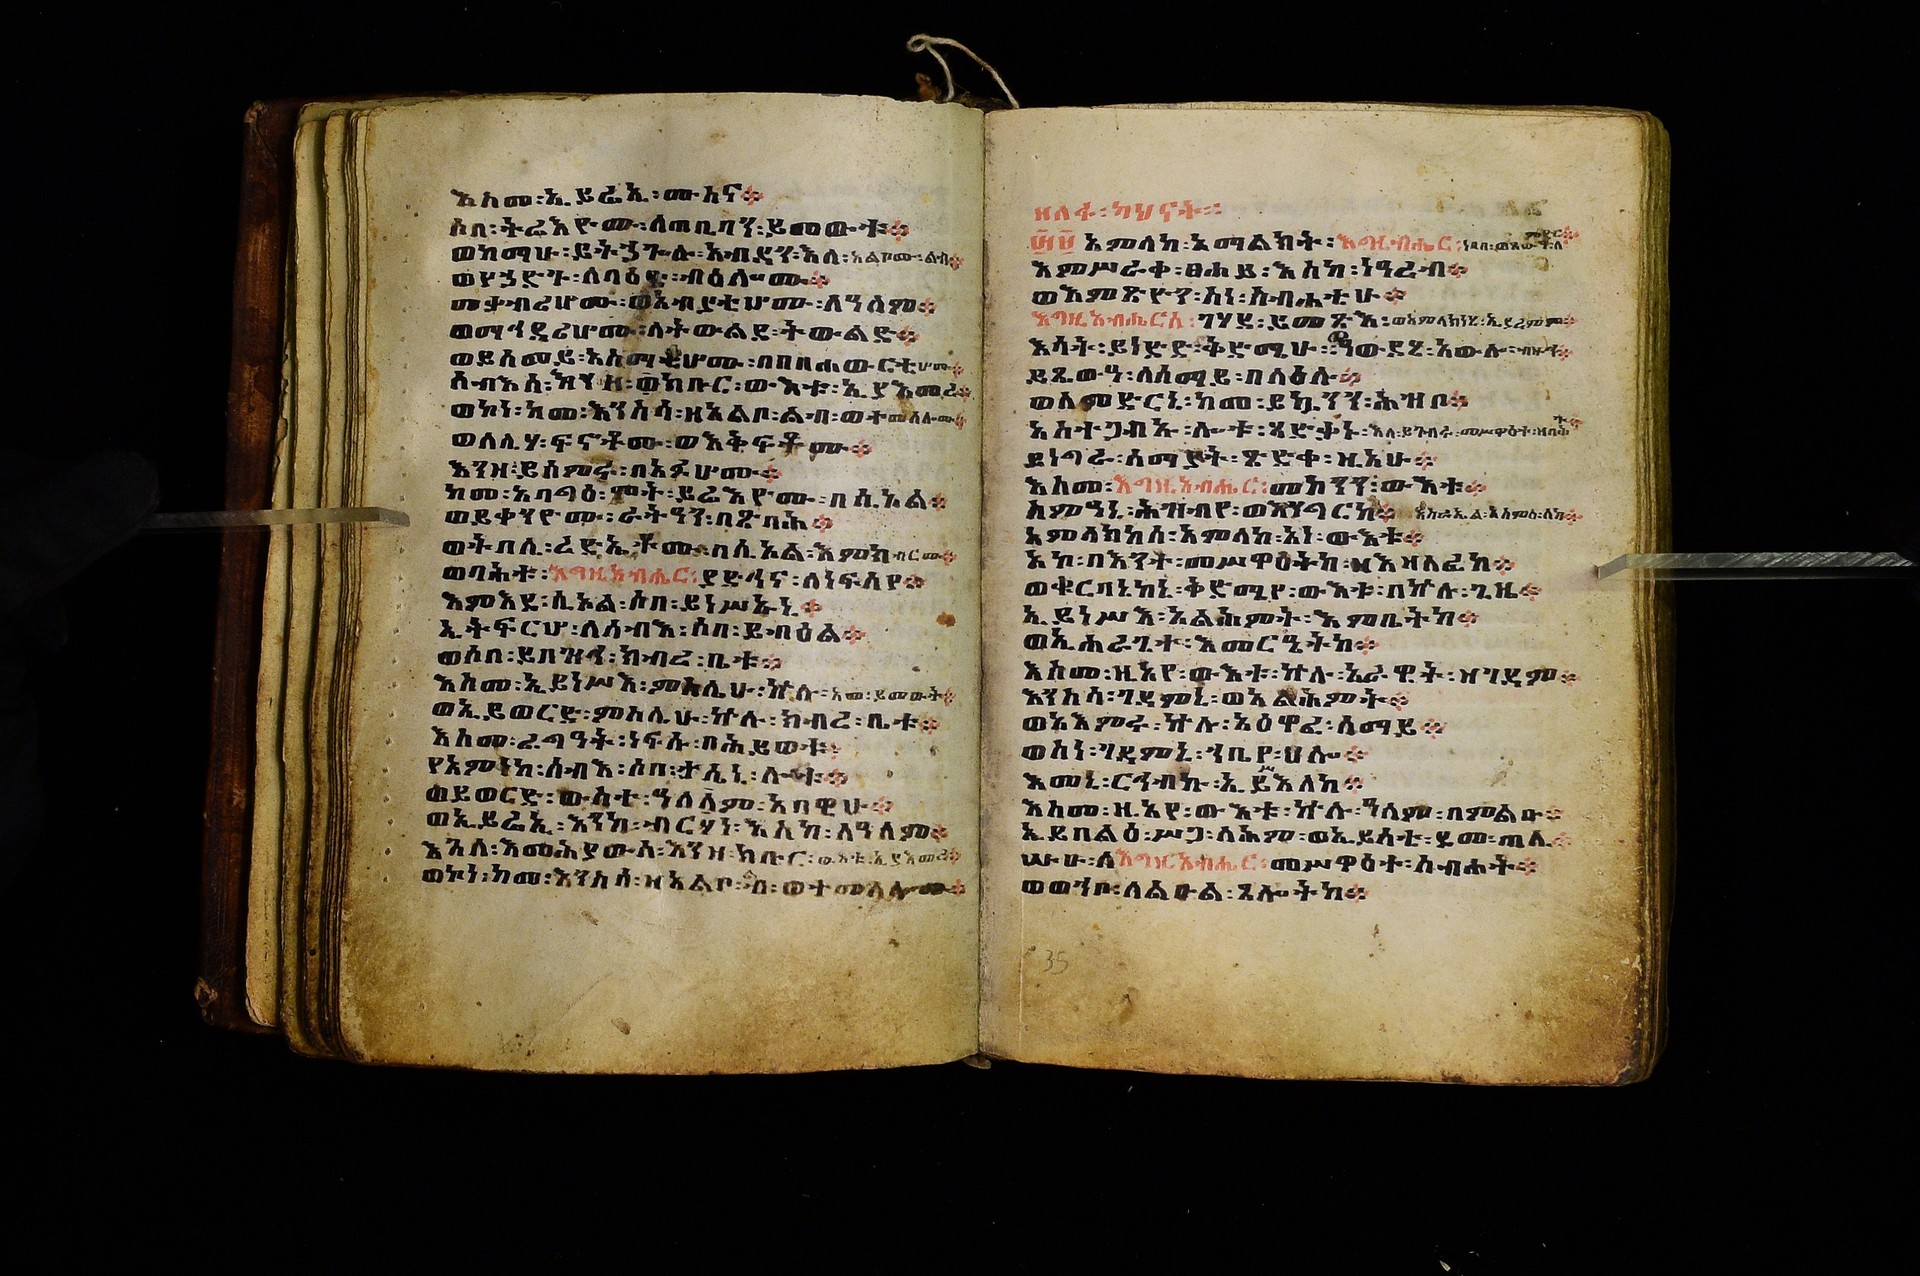 እስመ፡ኢይሬኢ፡ሙስና።
ሶበ፡ትሬእዮሙ፡ለጠቢባን፡ይመውቱ።
ወከማሁ፡ይትኃጐሉ፡አብዳን፡እለ፡አልቦሙ፡ልብ።
ወየኃድጉ፡ለባዕድ፡ብዕሎሙ።
መቃብሪሆሙ፡ወአብያቲሆሙ፡ለዓለም።
ወማኅደሪሆሙ፡ለትውልደ፡ትውልድ።
ወይሰመይ፡አስማቲሆሙ፡በበበሐውርቲሆሙ።
ሰብእሰ፡እንዘ፡ወክቡር፡ውእቱ፡ኢያእመረ።
ወኮነ፡ከመ፡እንስሳ፡ዘአልቦ፡ልብ፡ወተመሰሎሙ።
ወለሊሃ፡ፍኖቶሙ፡ወእቅፍቶሙ።
እንዘ፡ይሰምሩ፡በአፉሆሙ።
ከመ፡አባግዕ፡ሞት፡ይሬእዮሙ፡በሲኦል።
ወይቀንዮሙ፡ራትዓን፡በጽባሕ።
ወትበሊ፡ረድኤቶሙ፡በሲኦል፡እምክብሮሙ።
ወባሕቱ፡እግዚአብሔር፡ያድኅና፡ለነፍስየ።
እምእደ፡ሲኦል፡ሶበ፡ይነሥኡኒ።
ኢትፍርሆ፡ለሰብእ፡ሶበ፡ይብዕል።
ወሶበ፡ይበዝኅ፡ክብረ፡ቤቱ።
እስመ፡ኢይነሥእ፡ምስሌሁ፡ኵሎ፡አመ፡ይመውት።
ወኢይወርድ፡ምስሌሁ፡ኵሉ፡ክብረ፡ቤቱ።
እስመ፡ፈግዓት፡ነፍሱ፡በሕይወቱ።
የአምነከ፡ሰብእ፡ሶበ፡ታሤኒ፡ሎቱ።
ወይወርድ፡ውስተ፡ዓለመ፡አበዊሁ።
ወኢይሬኢ፡እንከ፡ብርሃነ፡እስከ፡ለዓለም።
እጓለ፡እመሕያውሰ፡እንዘ፡ክቡር፡ውእቱ፡ኢያእመረ።
ወኮነ፡ከመ፡እንስሳ፡ዘአልቦ፡ል፡ወተመሰሎሙ።
ዘለቶ፡ካህናት።
፵፱ አምላከ፡አማልክት፡እግዚአብሔር፡ነበበ፡ወጸውዓ፡ለምድር።
እምሥራቀ፡ፀሐይ፡እስከ፡ነዓረብ።
ወእምጽዮን፡ስነ፡ስብሐቲሁ።
እግዚአብሔርሰ፡ገሃደ፡ይመጽእ፡ወአምላክነሂ፡ኢያረምም።
እሳት፡ይነድድ፡ቅድሜሁ፡ዓውደሂ፡አውሎ፡ብዙኅ።
ይጼውዓ፡ለሰማይ፡በላዕሉ።
ወለምድርኒ፡ከመ፡ይኰንን፡ሕዝቦ።
አስተጋብኡ፡ሎቱ፡ጻድቃኑ፡እለ፡ይገብሩ፡መሥዋዕተ፡ዘበሕቱ።
ይነግራ፡ሰማያት፡ጽድቀ፡ዚአሁ።
እስመ፡እግዚአብሔር፡መኰንን፡ውእቱ።
ስምዓኒ፡ሕዝብየ፡ወእንግርከ፡እስራኤል፡አሰምዕ፡ለከ።
አምላክከሰ፡አምላክ፡አነ፡ውእቱ።
አኮ፡በእንተ፡መሥዋዕትከ፡ዘእዛለፈከ።
ወቍርባኒከኒ፡ቅድሜየ፡ውእቱ፡በኵሉ፡ጊዜ።
ኢይነሥእ፡አልሕምተ፡እምቤትከ።
ወኢሐራጊተ፡እመርዔትከ።
እስመ፡ዚአየ፡ውእቱ፡ኵሉ፡አራዊት፡ዘገዳም።
እንስሳ፡ገዳምኒ፡ወአልሕምት።
ወአአምር፡ኵሎ፡አዕዋፈ፡ሰማይ።
ወስነ፡ገዳምኒ፡ኀቤየ፡ሀሎ።
እመኒ፡ርኅብኩ፡ኢይስእለከ።
እስመ፡ዚአየ፡ውእቱ፡ኵሉ፡ዓለም፡በምልኡ።
ኢይበልዕ፡ሥጋ፡ላሕም፡ወኢይሰቲ፡ደመ፡ጠሊ።
ሡዑ፡ለእግዚአብሔር፡መሥዋዕተ፡ስብሐት።
ወሀቦ፡ለልዑል፡ጸሎትከ።
35